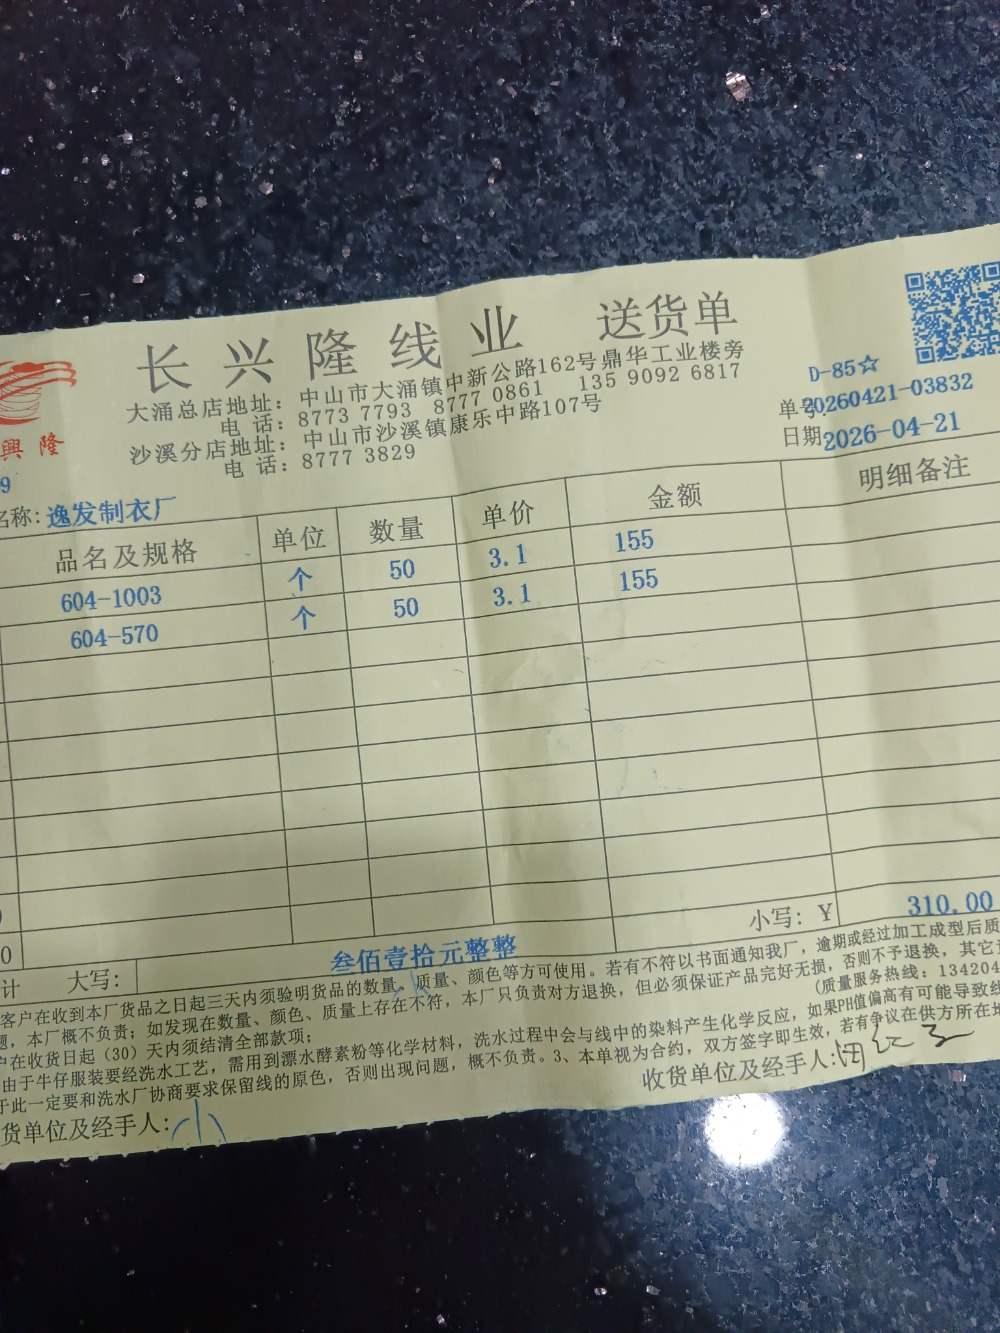 长兴隆线业 送货单
興隆
大涌总店地址：中山市大涌镇中新公路162号鼎华工业楼旁
电话：8773 7793 8777 0861 135 9092 6817
沙溪分店地址：中山市沙溪镇康乐中路107号
电话：8777 3829
D-85☆
单号:20260421-03832
日期2026-04-21
9
名称:逸发制衣厂
品名及规格 单位 数量 单价 金额 明细备注
604-1003 个 50 3.1 155
604-570 个 50 3.1 155
0
计 大写： 叁佰壹拾元整整 小写：￥ 310.00
客户在收到本厂货品之日起三天内须验明货品的数量、质量、颜色等方可使用。若有不符以书面通知我厂，逾期或经过加工成型后质
题，本厂概不负责；如发现在数量、颜色、质量上存在不符，本厂只负责对方退换，但必须保证产品完好无损，否则不予退换，其它
户在收货日起（30）天内须结清全部款项； （质量服务热线：134204
由于牛仔服装要经洗水工艺，需用到漂水酵素粉等化学材料，洗水过程中会与线中的染料产生化学反应，如果PH值偏高有可能导致线
于此一定要和洗水厂协商要求保留线的原色，否则出现问题，概不负责。3、本单视为合约，双方签字即生效，若有争议在供方所在地
货单位及经手人：小 收货单位及经手人：